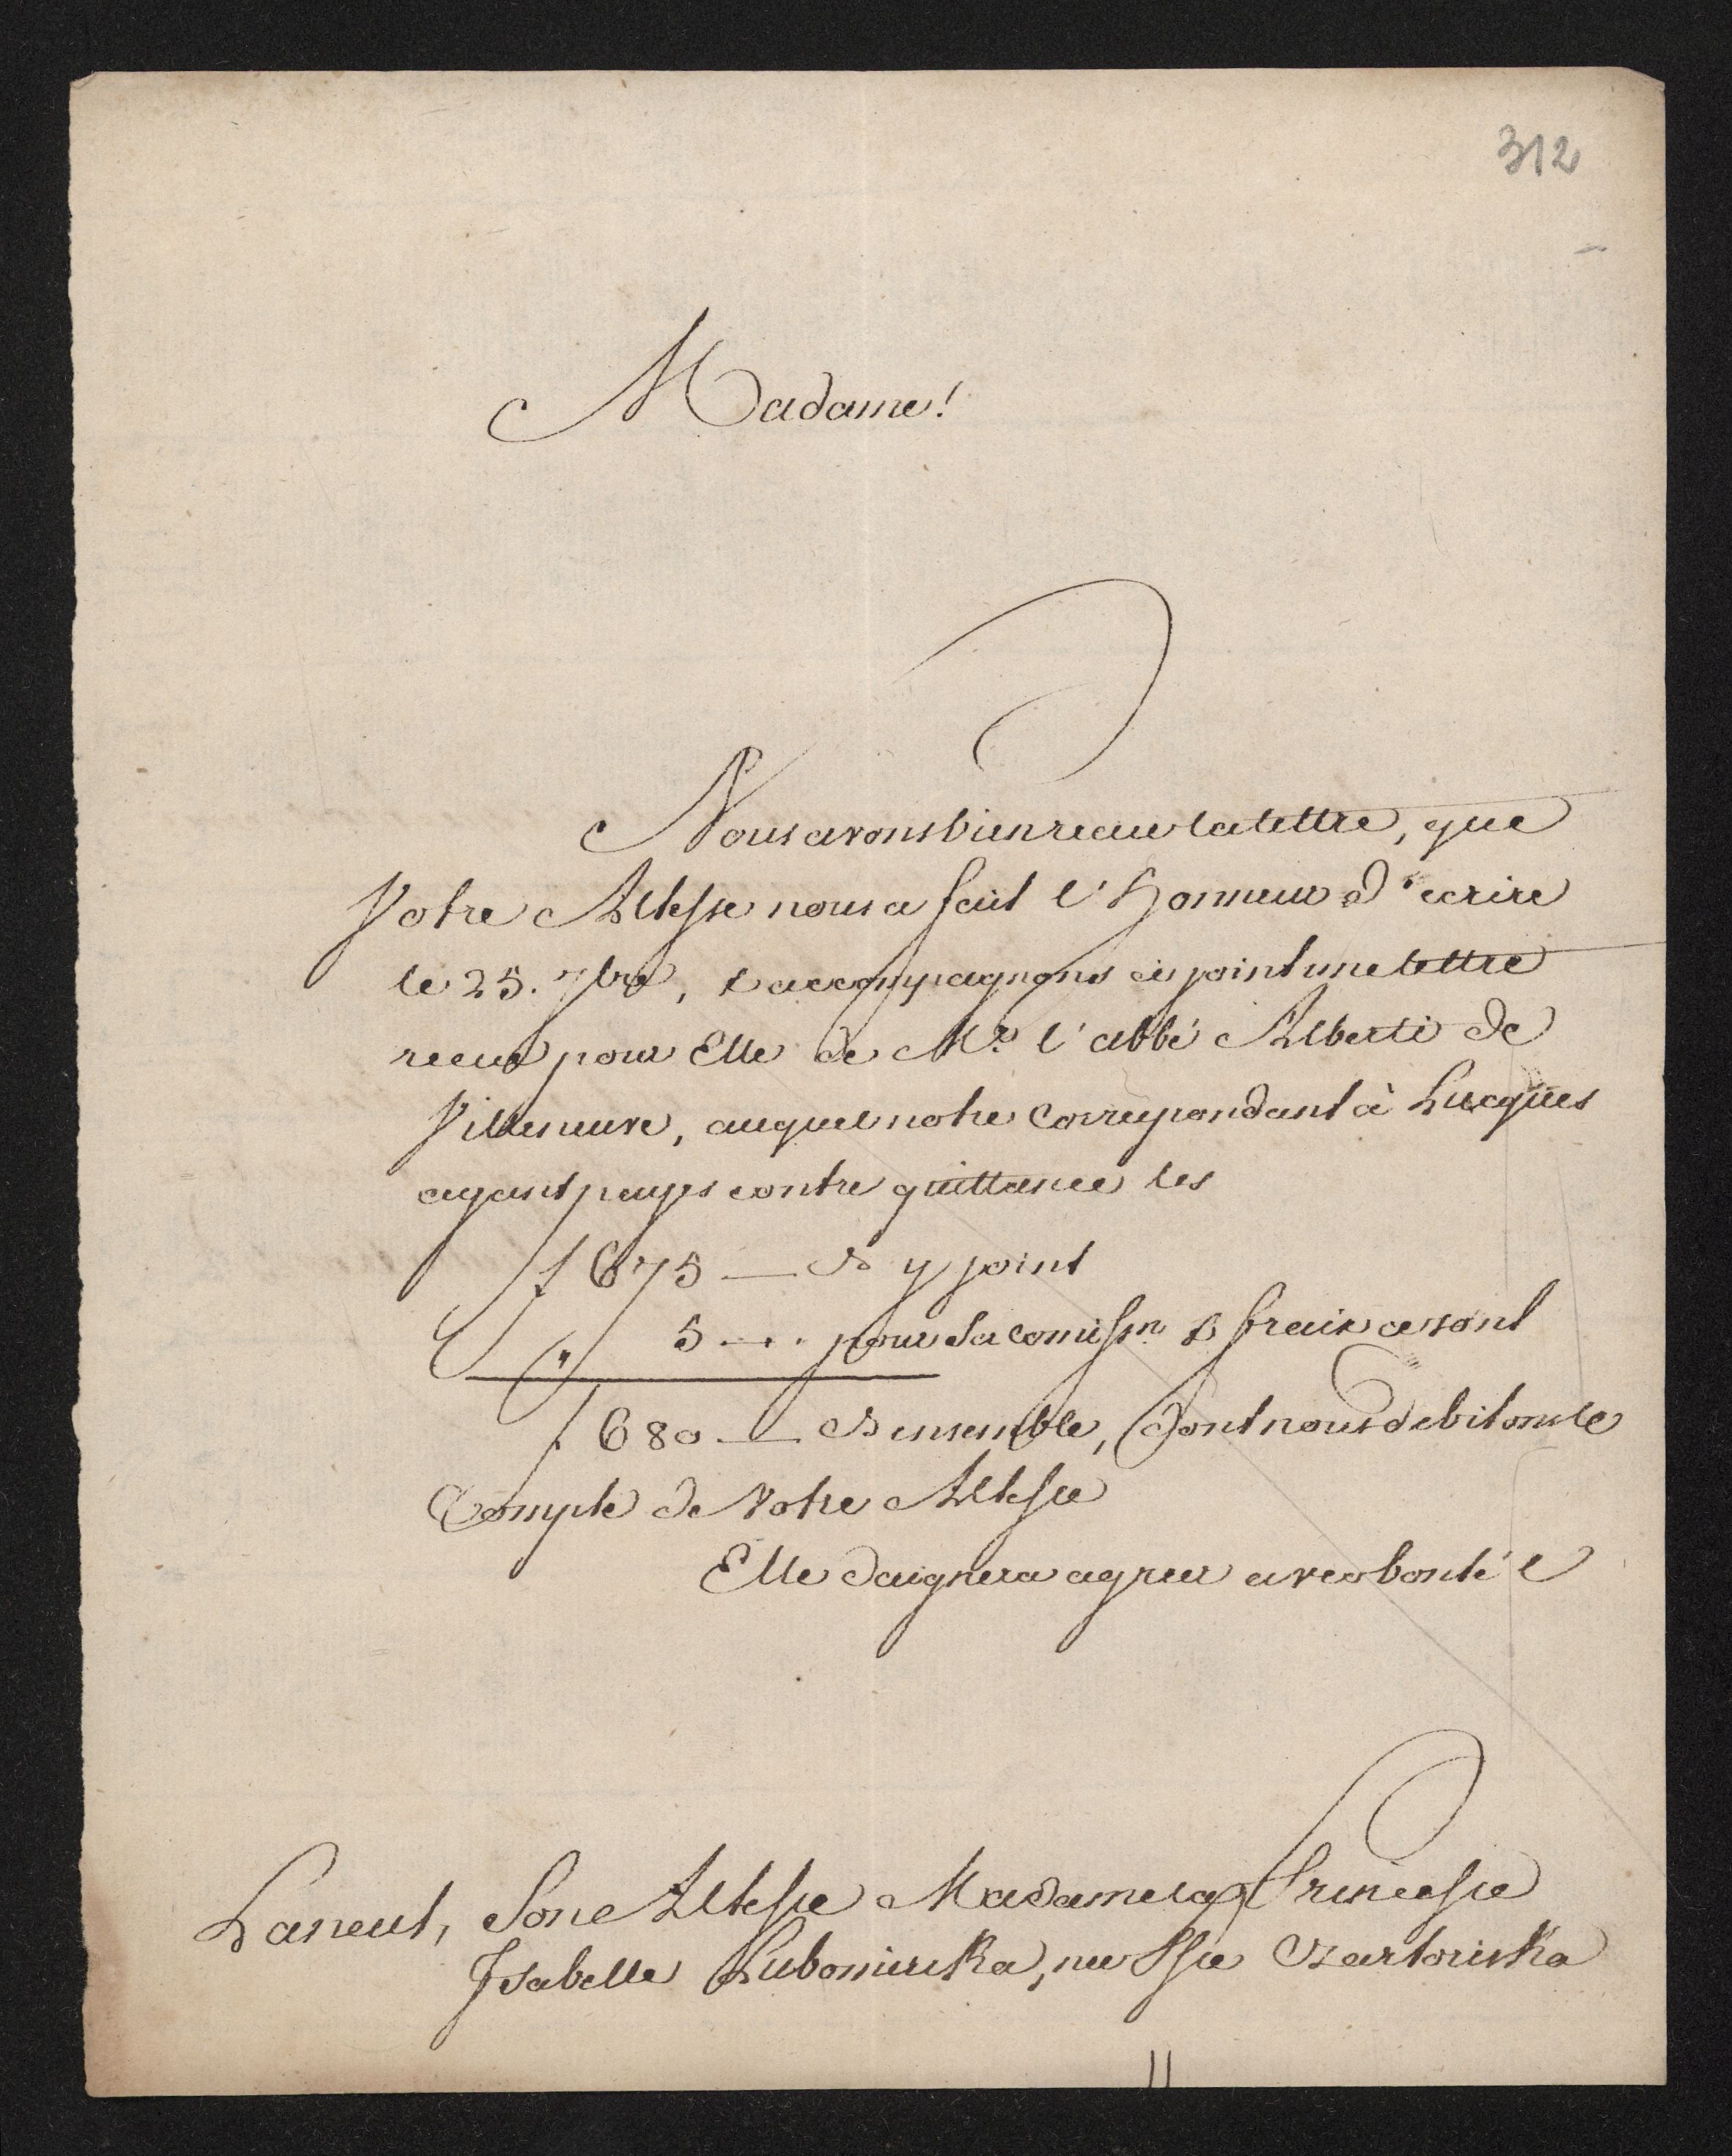 312
Madame!
Nous avons bien recue la lettre, que
Votre Altesse nous a fait l'Honneur d'ecrire
le 25. 7bre, & accompagnons ci joint une lettre
recue pour Elle de Mr. l'abbé Alberti de
Villeneuve, auquel notre Correspondant à Lucques
ayant payes contre quittance les
f 675 — & y joint
" 5 — . pour sa comissn & fraix ce sont
f 680 — ensemble, dont nous debitons le
Compte de Votre Altesse
Elle daignera agreer avec bonté l
Laneut, Son Altesse Madame la Princesse
Isabelle Lubomirska, nee Psse Czartoriska